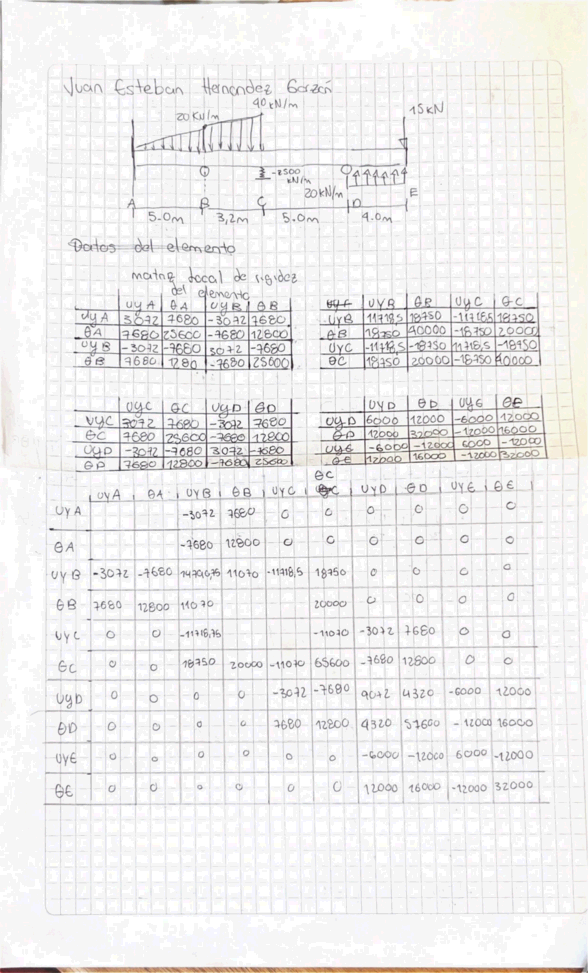 Juan Esteban Hernandez Garzón
40 kN/m
20 kN/m
15 kN
-2500
kN/m
20 kN/m
A B C D E
5.0m 3,2m 5.0m 4.0m
Datos del elemento
matriz local de rigidez
del elemento
UyA θA UyB θB
UyA 3072 7680 -3072 7680
θA 7680 25600 -7680 12800
UyB -3072 -7680 3072 -7680
θB 7680 1280 -7680 25600
UYB θB UyC θC
UyB 11718,5 18750 -11718,5 18750
θB 18750 40000 -18750 20000
UYC -11718,5 -18750 11718,5 -18750
θC 18750 20000 -18750 40000
UyC θC UyD θD
UyC 3072 7680 -3072 7680
θC 7680 25600 -7680 12800
UyD -3072 -7680 3072 -7680
θD 7680 12800 -7680 25600
UyD θD UyE θE
UyD 6000 12000 -6000 12000
θD 12000 32000 -12000 16000
UyE -6000 -12000 6000 -12000
θE 12000 16000 -12000 32000
θC
UYA θA UYB θB UYC UYD θD UYE θE
UYA -3072 7680 0 0 0 0 0 0
θA -7680 12800 0 0 0 0 0 0
UYB -3072 -7680 14790,75 11070 -11718,5 18750 0 0 0 0
θB 7680 12800 11070 20000 0 0 0 0
UYC 0 0 -11718,75 -11070 -3072 7680 0 0
θC 0 0 18750 20000 -11070 65600 -7680 12800 0 0
UyD 0 0 0 0 -3072 -7680 9072 4320 -6000 12000
θD 0 0 0 0 7680 12800 4320 57600 -12000 16000
UYE 0 0 0 0 0 0 -6000 -12000 6000 -12000
θE 0 0 0 0 0 0 12000 16000 -12000 32000